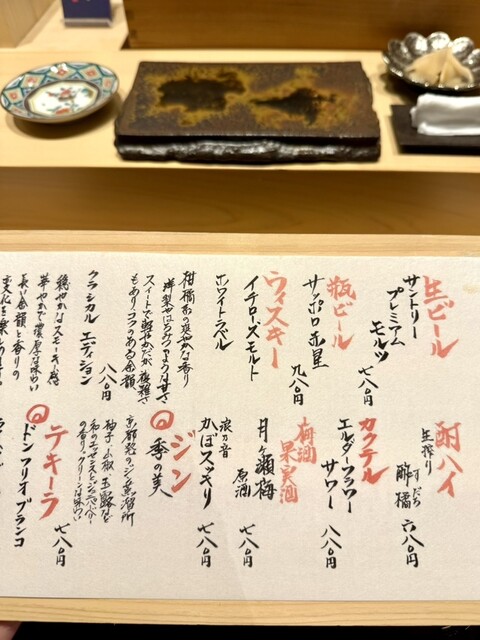 生ビール
サントリー
プレミアム
モルツ
七八〇円
瓶ビール
サッポロ赤星
九八〇円
ウィスキー
イチローズモルト
ホワイトラベル
柑橘系の爽やかな香り
洋梨やはちみつのような甘さ
スイートで軽やかだが複雑さ
もあり、コクのある余韻
八八〇円
クラシカルエディション
穏やかなスモーキー感
華やかで濃厚な味わい
長い余韻と香りの
酎ハイ
生搾り
すだち
酢橘
六八〇円
カクテル
エルダーフラワー
サワー
八八〇円
梅酒
果実酒
月ヶ瀬梅
原酒
七八〇円
浪乃音
かぼスッキリ
七八〇円
ジン
季の美
京都発のジン蒸留所
柚子、山椒、玉露など
和のエッセンス
テキーラ
ドンフリオブランコ
七八〇円